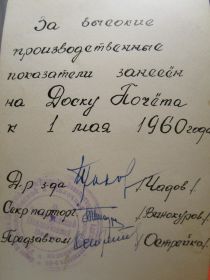 За высокие
производственные
показатели занесён
на Доску Почёта
к 1 мая 1960 года
Д-р з-да /Чадов/
Секр парторг. /Винокуров/
Предзавком /Острейко/